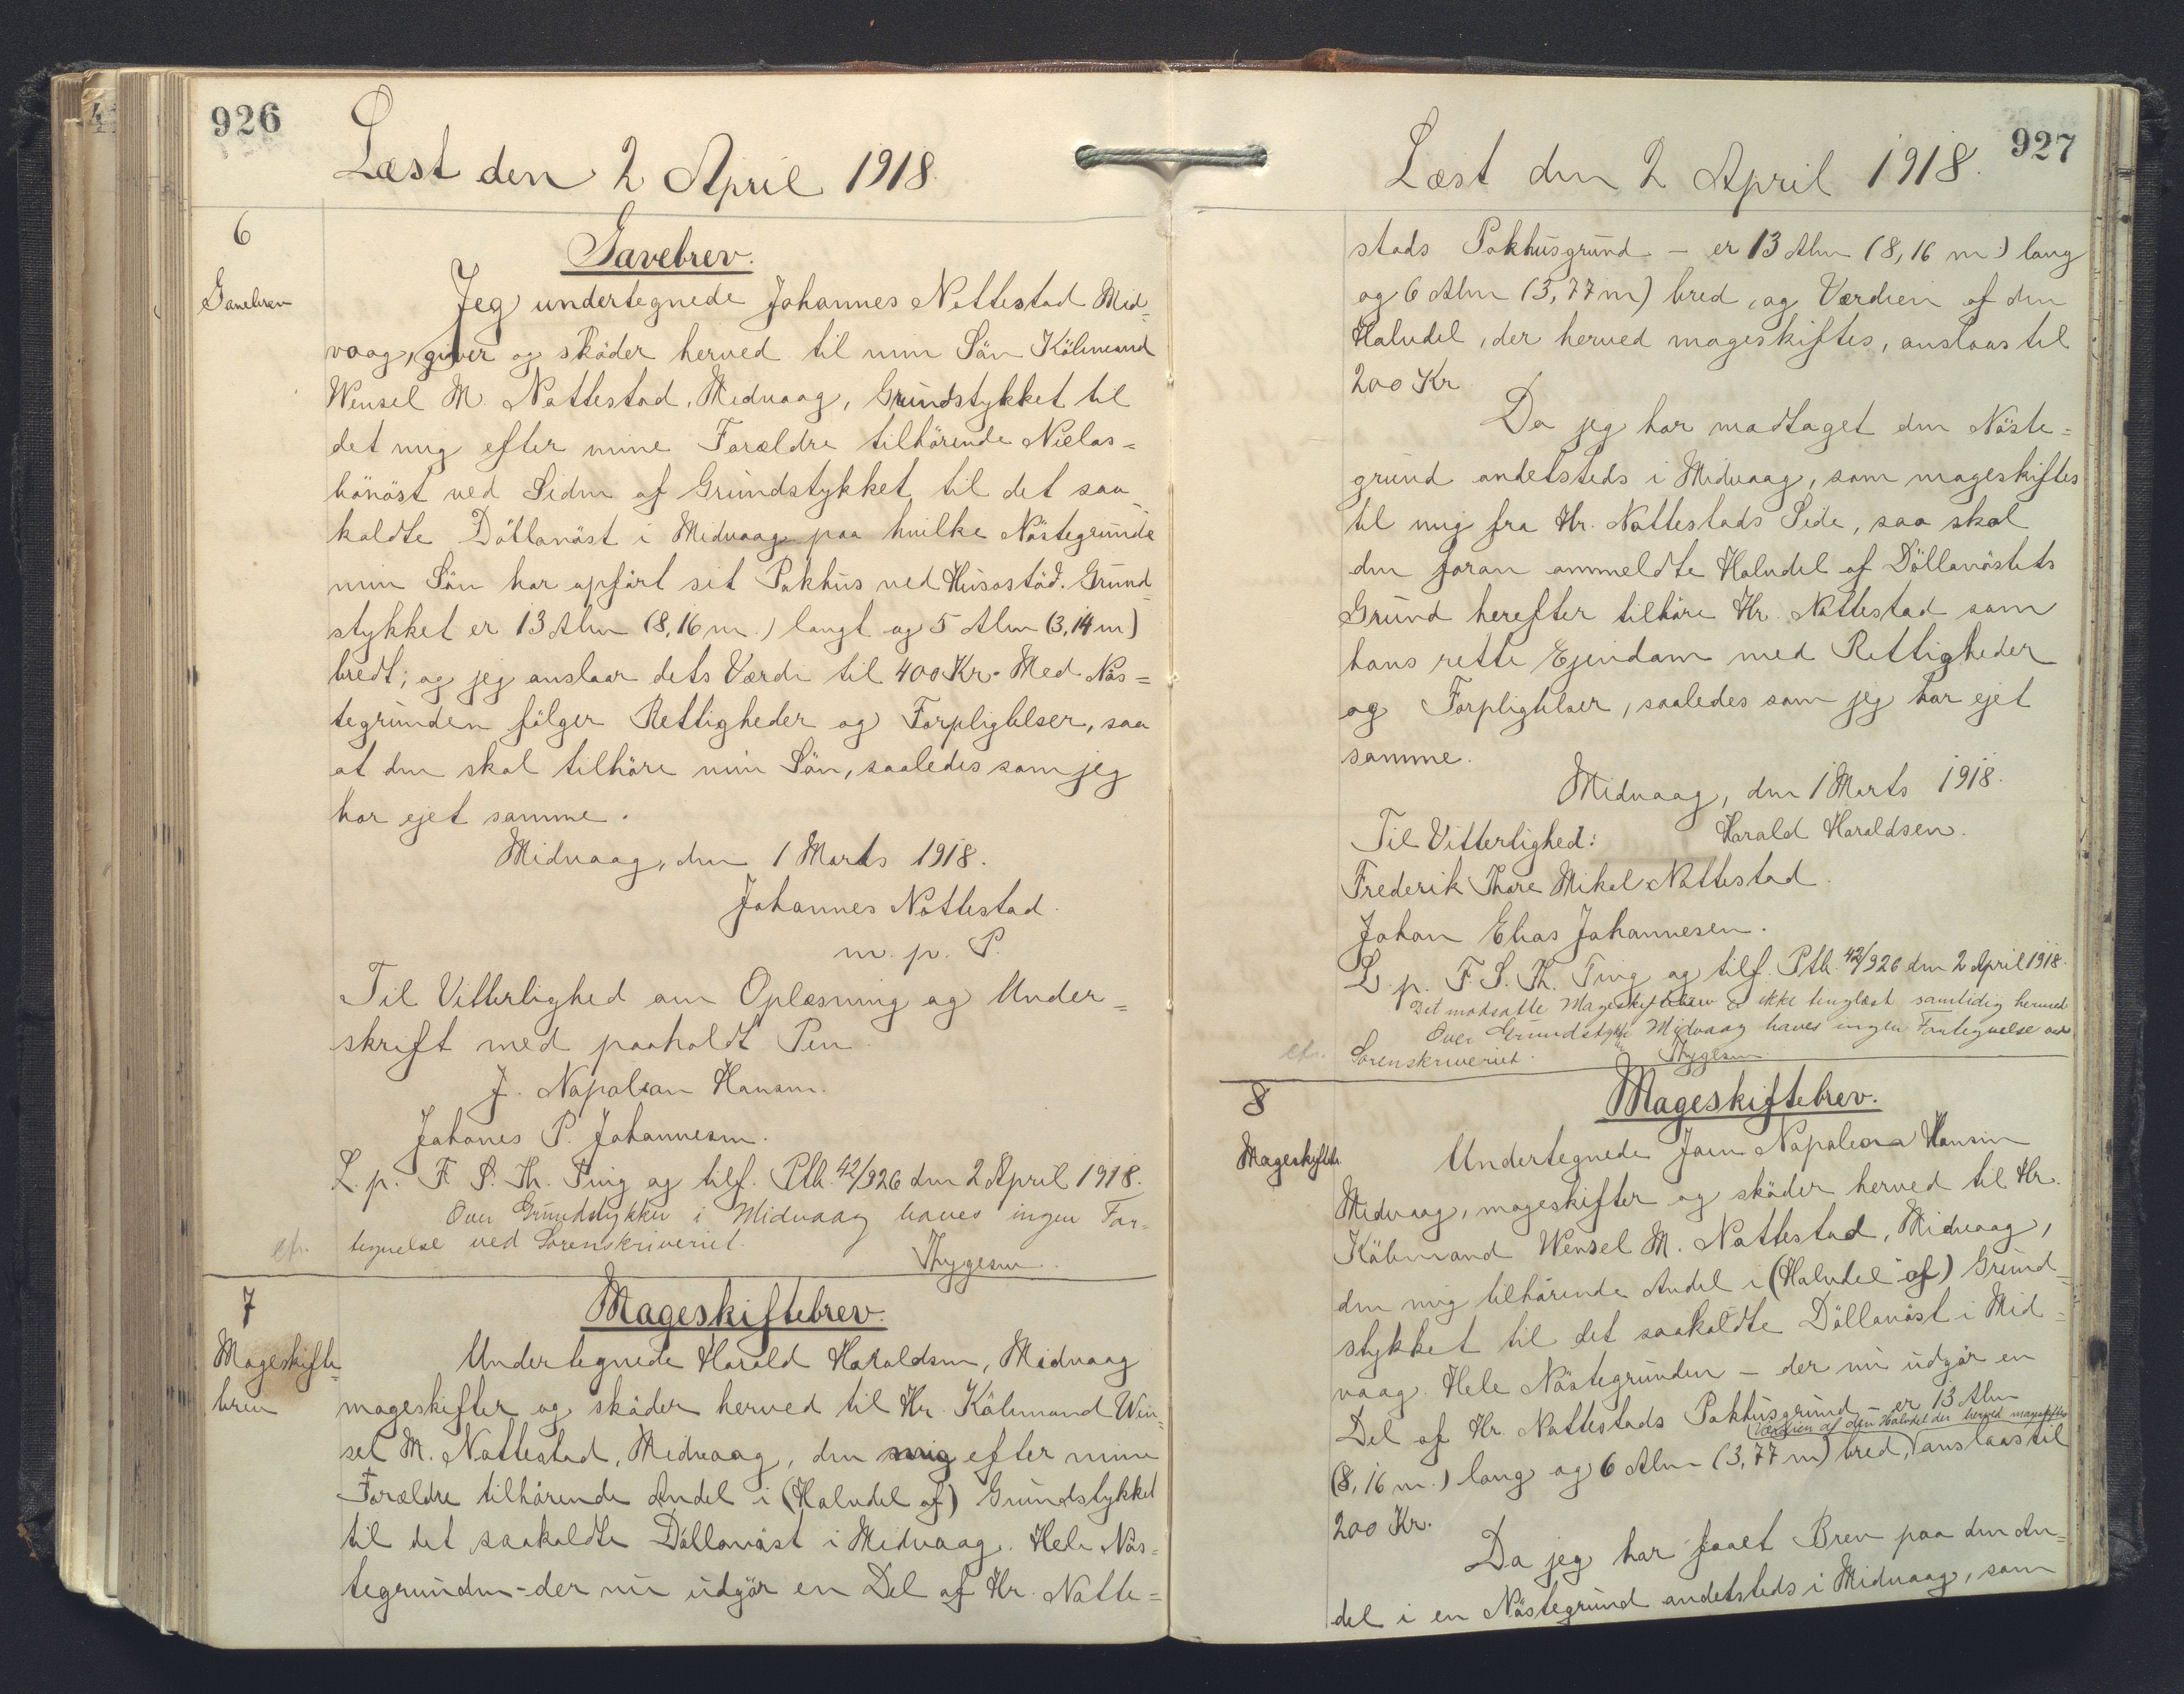 926
Læst den 2 April 1918.
6
Gavebrev
Gavebrev.
Jeg undertegnede Johannes Nattestad Mid=
vaag, giver og sköder herved til min Sön Köbmand
Wensel M. Nattestad, Midvaag, Grundstykket til
det mig efter mine Forældre tilhörende Nielas=
hönöst ved Siden af Grundstykket til det saa
kaldte Döllanöst i Midvaag paa hvilke Nöstegrunde
min Sön har opfört sit Pakhus ved Husastöd. Grund=
stykket er 13 Alen (8,16 m.) langt og 5 Alen (3,14 m)
bredt; og jeg anslaar dets Værdi til 400 Kr. Med Nös=
tegrunden fölger Rettigheder og Forpligtelser, saa
at den skal tilhöre min Sön, saaledes som jeg
har ejet samme.
Midvaag, den 1 Marts 1918.
Johannes Nattestad.
m. p. P.
Til Vitterlighed om Oplæsning og Under=
skrift med paaholdt Pen.
J. Napoleon Hansen.
Johanes P. Johannesen.
L. p. F. S. Th. Ting og tilf. Ptb. 42/926 den 2 April 1918.
Over Grundstykker i Midvaag haves ingen For=
tegnelse ved Sorenskriveriet.
Thygesen.
7
Mageskifte=
brev
Mageskiftebrev.
Undertegnede Harald Haraldsen, Midvaag
mageskifter og sköder herved til Hr. Köbmand Wen=
sel M. Nattestad, Midvaag, den mig efter mine
Forældre tilhörende Andel i (Halvdel af) Grundstykket
til det saakaldte Döllanöst i Midvaag. Hele Nös=
tegrunden - der nu udgör en Del af Hr. Natte=
927
Læst den 2 April 1918.
stads Pakhusgrund - er 13 Alen (8,16 m) lang
og 6 Alen (3,77 m) bred, og Værdien af den
Halvdel, der herved mageskiftes, anslaas til
200 Kr.
Da jeg har modtaget den Nöste=
grund andetsteds i Midvaag, som mageskiftes
til mig fra Hr. Nattestads Side, saa skal
den foran ommeldte Halvdel af Döllanöstets
Grund herefter tilhöre Hr. Nattestad som
hans rette Ejendom med Rettigheder
og Forpligtelser, saaledes som jeg har ejet
samme.
Midvaag, den 1 Marts 1918.
Til Vitterlighed: Harald Haraldsen.
Frederik Thore Mikal Nattestad.
Johan Elias Johannesen.
L. p. F. S. Th. Ting og tilf. Ptb. 42/926 den 2 April 1918.
Det modsatte Mageskiftebrev er ikke tinglæst samtidig hermed
Over Grundstykker i Midvaag haves ingen Fortegnelse ved
Sorenskriveriet. Thygesen.
8
Mageskifte
Mageskiftebrev.
Undertegnede Joen Napoleon Hansen
Midvaag, mageskifter og sköder herved til Hr.
Köbmand Wensel M. Nattestad, Midvaag,
den mig tilhörende Andel i (Halvdel af) Grund=
stykket til det saakaldte Döllanöst i Mid=
vaag. Hele Nöstegrunden - der nu udgör en
Del af Hr. Nattestads Pakhusgrund - er 13 Alen
Værdien af den Halvdel der herved mageskiftes
(8,16 m.) lang og 6 Alen (3,77 m) bred, anslaas til
200 Kr.
Da jeg har faaet Brev paa den An=
del i en Nöstegrund andetsteds i Midvaag, som